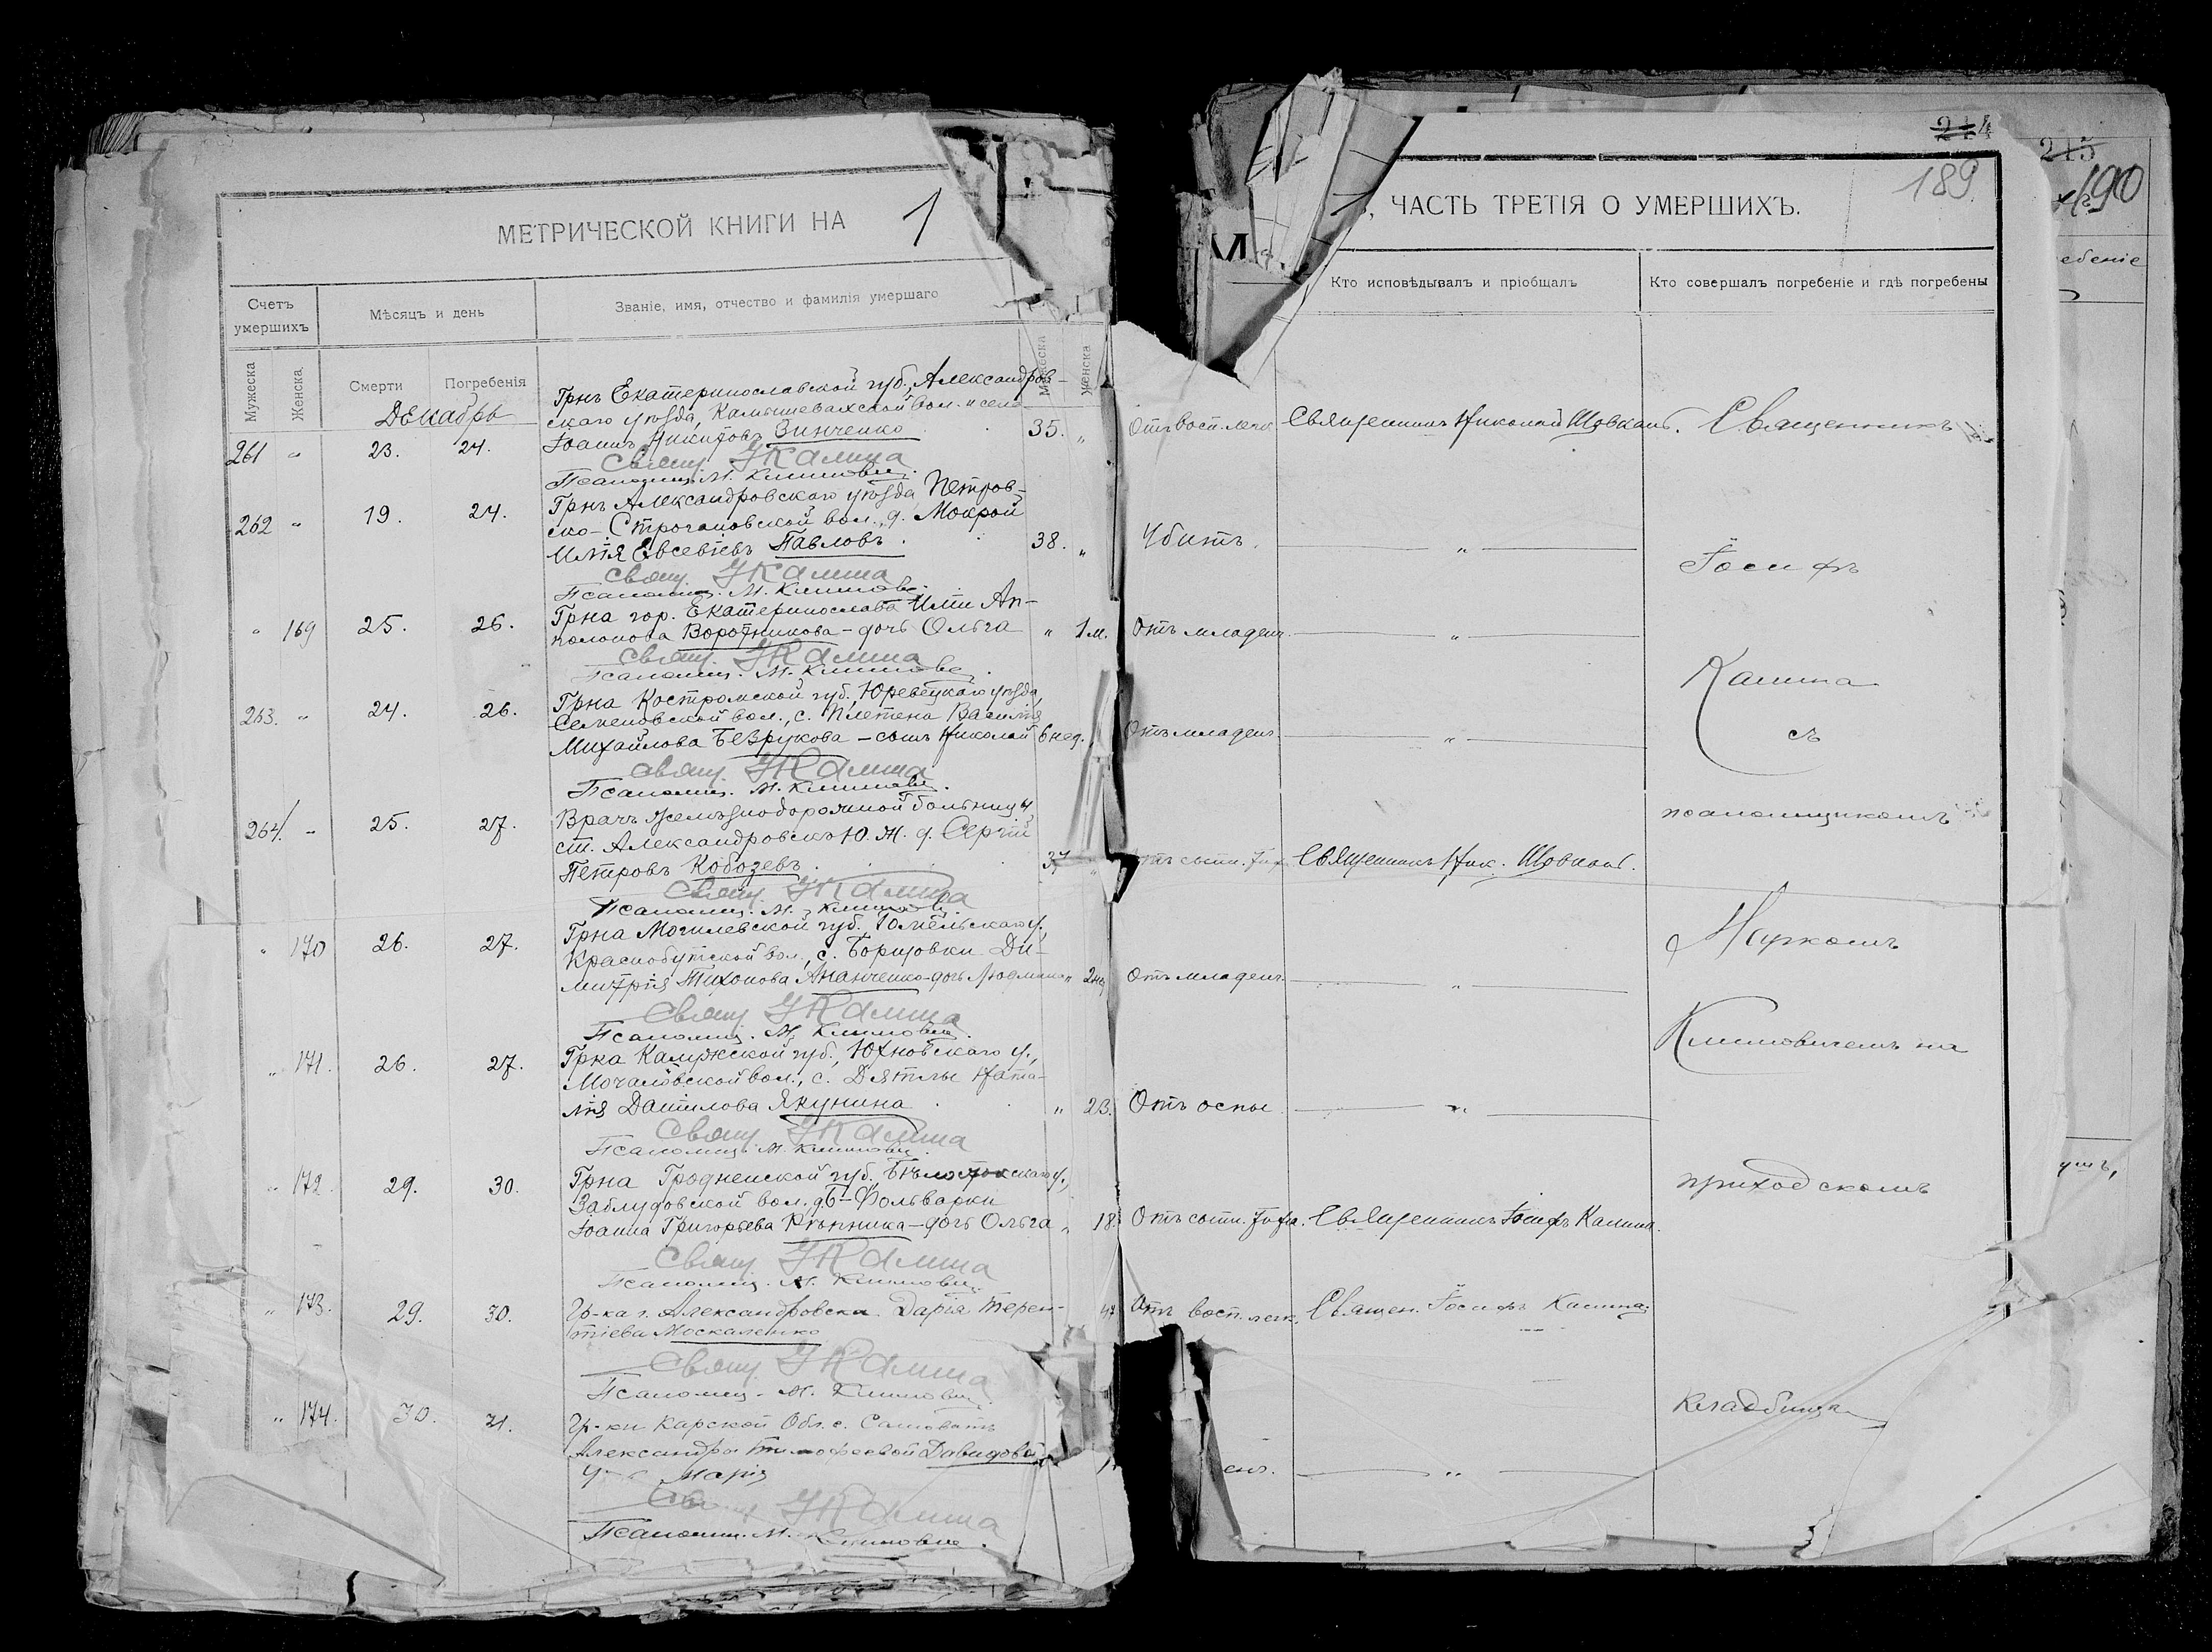 МЕТРИЧЕСКОЙ КНИГИ НА 1
Счетъ умершихъ
Мѣсяцъ и день
Званіе, имя, отчество и фамилія умершаго
Мужеска
Женска
Смерти
Погребенія
Мужеска
Женска
Декабрь
Грнъ Екатеринославской губ., Александров-
скаго уѣзда, Камышевахской вол. и села
261 " 23. 24. Іоаннъ Никитовъ Зинченко 35. "
Свящ. І Калина
Псаломщ. М. Климович.
Грнъ Александровскаго уѣзда Петров-
262 " 19. 24. ско-Строгановской вол., д. Мокрой
Илія Евсевіевъ Павловъ. 38. "
Свящ. І Калина
Псаломщ. М. Климович.
Грна гор. Екатеринослава Иліи Ап-
" 169 25. 26. полонова Воротникова - дочь Ольга " 1 м.
Свящ. І Калина
Псаломщ. М. Климович.
Грна Костромской губ., Юревецкаго уѣзда,
263. " 24. 26. Семеновской вол., с. Плетена Василія
Михайлова Безрукова - сынъ Николай 6 нед.
Свящ. І Калина
Псаломщ. М. Климович.
264. " 25. 27. Врачъ желѣзнодорожной больницы
ст. Александровскъ Ю. ж. д. Сергій
Петровъ Кобозевъ. 37 "
Свящ. І Калина
Псаломщ. М. Климович.
Грна Могилевской губ. Гомельскаго у.,
" 170 26. 27. Краснобутской вол., с. Борщовки Ди-
митрія Тихонова Ананченко - дочь Людмила " 2 нед
Свящ. І Калина
Псаломщ. М. Климович.
" 171. 26. 27. Грка Калужской губ., Юхновскаго у.,
Мочаловской вол., с. Дятлы Ната-
лія Данилова Якунина " 23.
Свящ. І Калина
Псаломщ. М. Климович.
" 172. 29. 30. Грна Гродненской губ., Бѣлостокскаго у.,
Заблудовской вол. д.
Іоанна Григорьева - дочь Ольга " 18
Свящ. І Калина
Псаломщ. М. Климович.
" 173. 29. 30. Гр-ка г. Александровска Дарія Терен-
тіева Москаленко
Свящ. І Калина
Псаломщ. М. Климович.
" 174. 30. 31. Гр-ки Карской Обл. с.
Александры Тимофеевой Давидовой
Марія
Свящ. І Калина
Псаломщ. М. Климович.
214
189
, ЧАСТЬ ТРЕТІЯ О УМЕРШИХЪ.
Кто исповѣдывалъ и пріобщалъ
Кто совершалъ погребеніе и гдѣ погребены
Отъ восп. легк. Священникъ Николай Шовкопл. Священникъ
Убитъ. "
Іосифъ
Отъ младенч. "
Калина
Отъ младенч. " съ
псаломщикомъ
Отъ сыпн. тифа Священникъ Ник. Шовкопл.
Маркомъ
Отъ младенч. "
Климовичемъ на
Отъ оспы "
приходскомъ
Отъ сыпн. тифа. Священникъ Іосифъ Калина.
Отъ восп. легк. Священ. Іосифъ Калина
кладбищѣ
енч. "
215
190
ебеніе